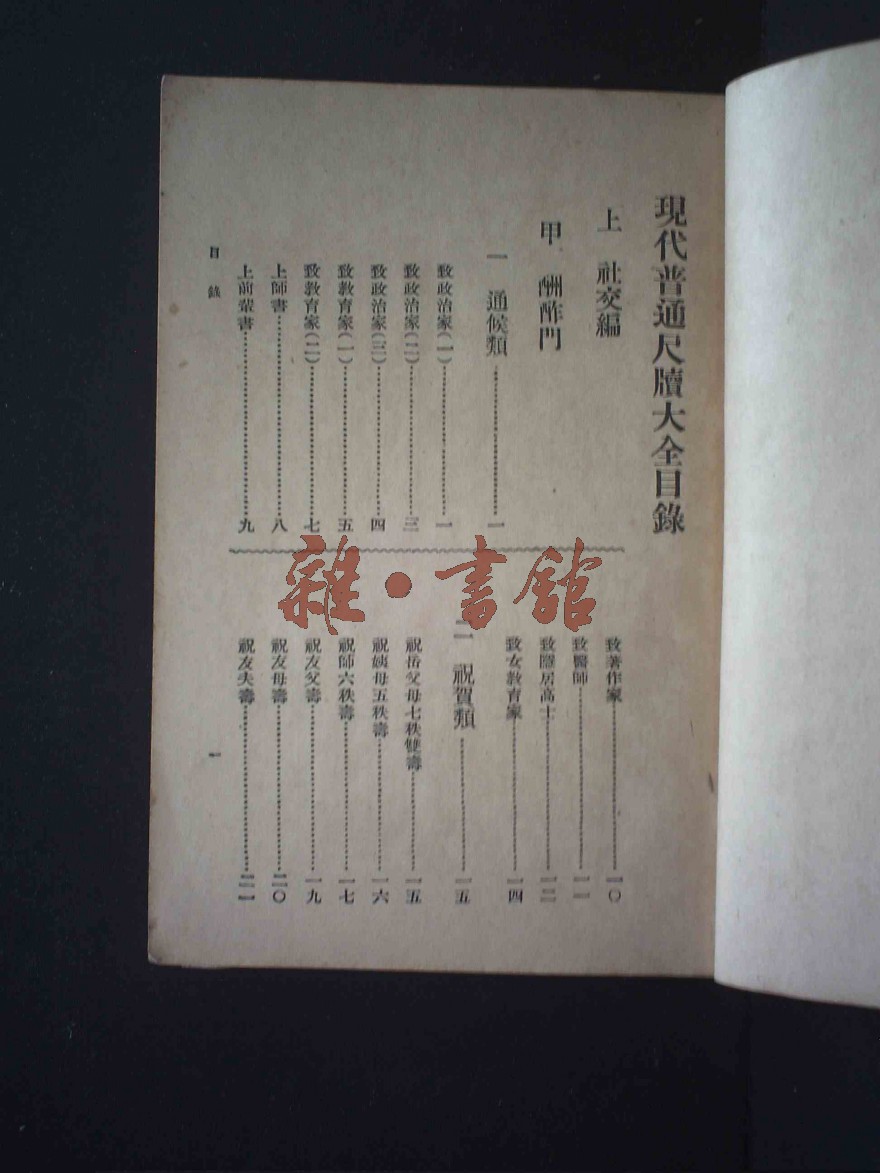 現代普通尺牘大全目錄
上 社交編
甲 酬酢門
一 通候類……一
致政治家(一)……一
致政治家(二)……三
致政治家(三)……四
致教育家(一)……五
致教育家(二)……七
上師書……八
上前輩書……九
致著作家……一〇
致醫師……一一
致隱居高士……一二
致女教育家……一四
二 祝賀類……一五
祝岳父母七秩雙壽……一五
祝姨母五秩壽……一六
祝師六秩壽……一七
祝友父壽……一九
祝友母壽……二〇
祝友夫壽……二一
目錄
一
雜·書館